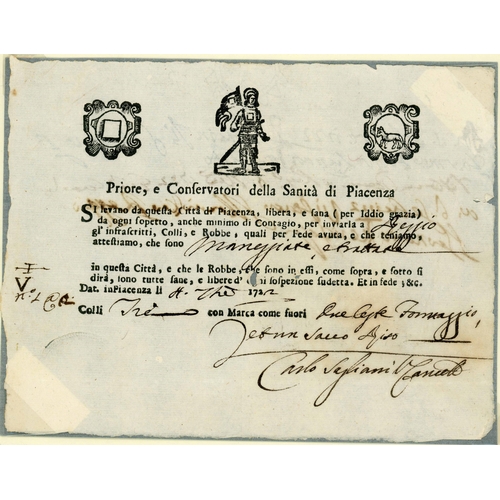 Priore, e Conservatori della Sanità di Piacenza
SI levano da questa Città di Piacenza, libera, e sana (per Iddio grazia)
da ogni sopetto, anche minimo di Contagio, per inviarla a Reggio
gl' infrascritti, Colli, e Robbe, quali per Fede avuta, e che teniamo,
attestiamo, che sono Maneggiate, e trattate
in questa Città, e che le Robbe, che sono in essi, come sopra, e sotto si
dirà, sono tutte sane, e libere d'ogni sospezione sudetta. Et in fede &c.
Dat. in Piacenza li 1722
Colli Trè con Marca come fuori Due Ceste Formaggio,
et un Sacco Riso
Carlo